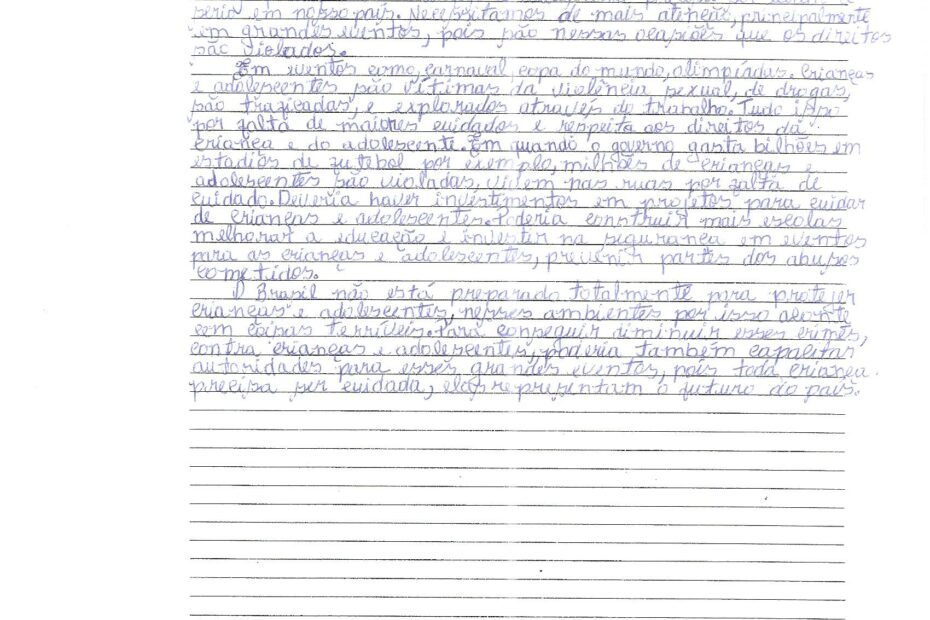 serir em nosso país. Necessitamos de mais atenção, principalmente
em grandes eventos, pois são nessas ocasiões que os direitos
são violados.
Em eventos como, carnaval, copa do mundo, olimpíadas. Crianças
e adolescentes são vítimas da violência sexual, de drogas,
são traficadas, e explorados através do trabalho. Tudo isso
por falta de maiores cuidados e respeita aos direitos da
criança e do adolescente. Em quando o governo gasta bilhões em
estadios de futebol por exemplo, milhões de crianças e
adolescentes são violadas, vivem nas ruas por falta de
cuidado. Deveria haver investimentos em projetos para cuidar
de crianças e adolescentes. Poderia construir mais escolas
melhorar a educação e invester na segurança em eventos
para as crianças e adolescentes, prevenir partes dos abusos
cometidos.
O Brasil não está preparado totalmente para protejer
crianças e adolescentes, nesses ambientes por isso aconte
cem coisas terríveis. Para conseguir diminuir esses crimes,
contra crianças e adolescentes, poderia também capacitar
autoridades para esses grandes eventos, pois toda criança
precisa ser cuidada, elas representam o futuro do país.